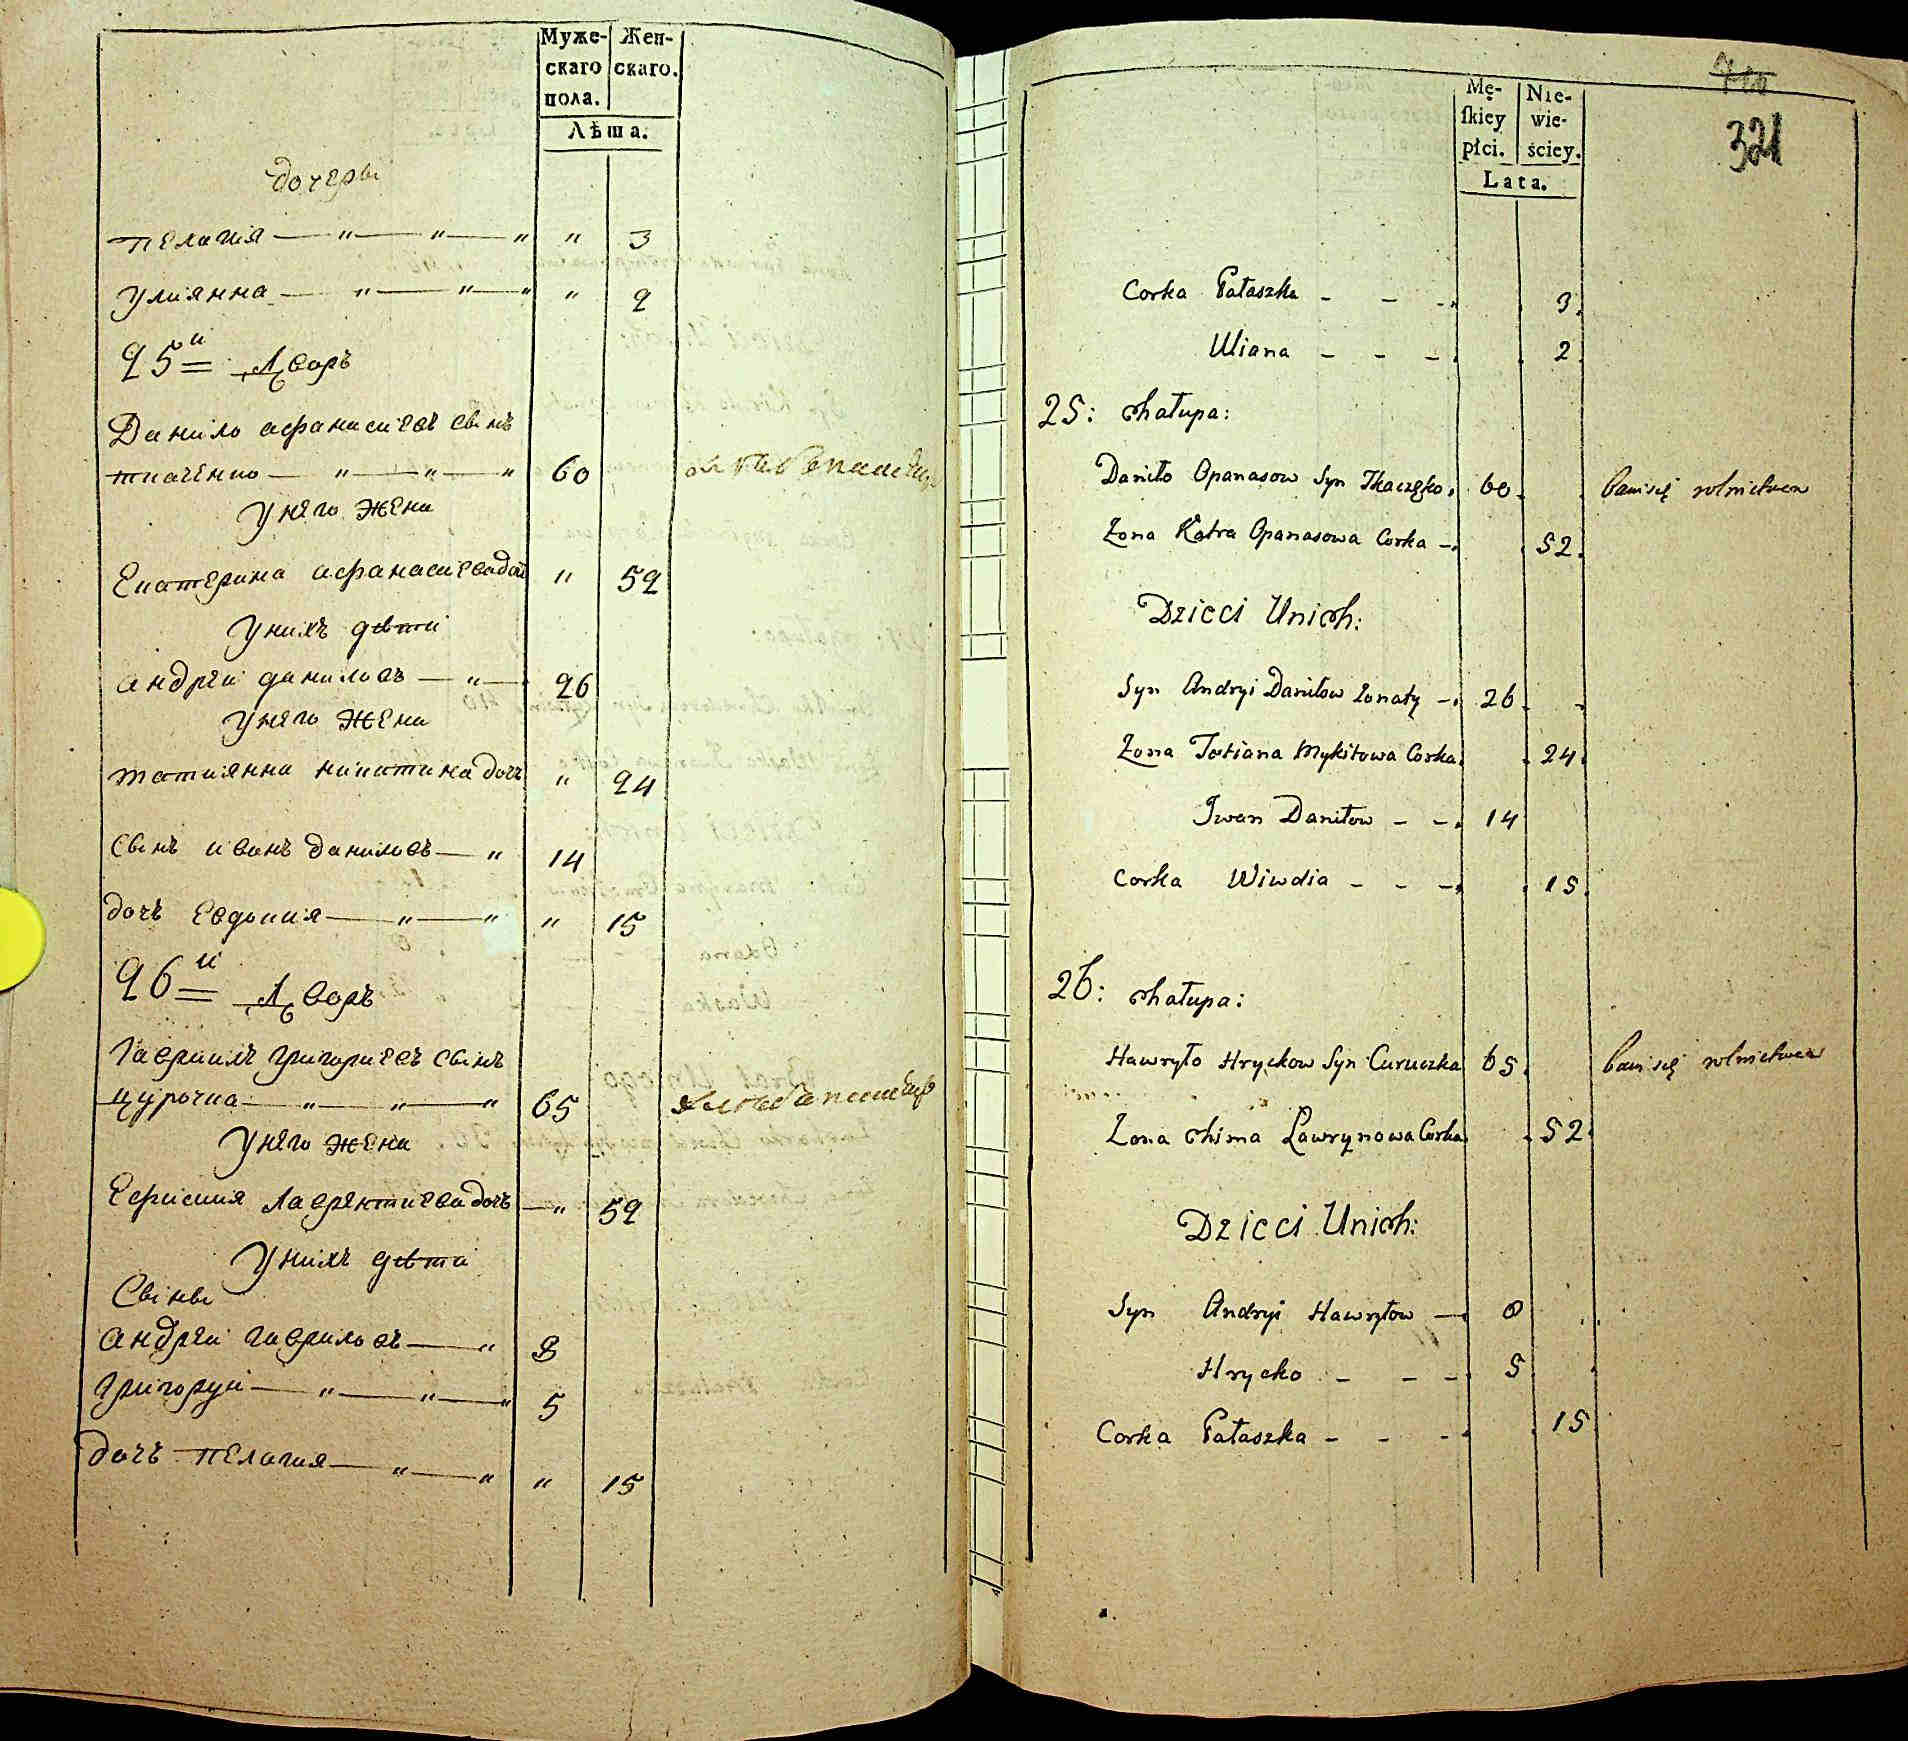 Муже-
скаго
пола.
Жен-
скаго.
Лѣта.
дочери
пелагия — " — " — " " 3
улиянна — " — " — " " 2
25й Дворъ
Данило афанасиевъ сынъ
ткаченко — " — " — " 60 хлебопашецъ
У него жена
Екатерина афанасиева доч " 52
У нихъ дѣти
андрей данилов — " — 26
У него жена
татиянна никитина доч " 24
сынъ иванъ данилов — " 14
дочъ евдокия — " — " " 15
26й Дворъ
гавриилъ григориевъ сынъ
цурочка — " — " — " 65 хлебопашецъ
У него жена
Ефимия лаврентиева дочъ — " 52
У нихъ дѣти
Сыны
андрей гаврилов — " 8
григорий — " — " — " 5
дочъ пелагия — " — " " 15
Mę-
skiey
płci.
Nie-
wie-
ściey.
Lata.
321
Corka Pałaszka - - - 3.
Uliana - - - 2.
25: chałupa:
Daniło Opanasow Syn Tkaczęko. 60. bawi się rolnictwem
Zona Katra Opanasowa Corka - 52.
Dzieci Unich:
Syn Andryi Daniłow żonaty - 26.
Zona Tatiana Mykitowa Corka. 24.
Iwan Daniłow - - 14
Corka Wiwdia - - - 15.
26: chałupa:
Hawryło Hryckow Syn Curuczka 65. bawi się rolnictwem
Zona Chima Ławrynowa Corka 52.
Dzieci Unich:
Syn Andryi Hawryłow - 8
Hrycko - - - 5
Corka Pałaszka - - - 15